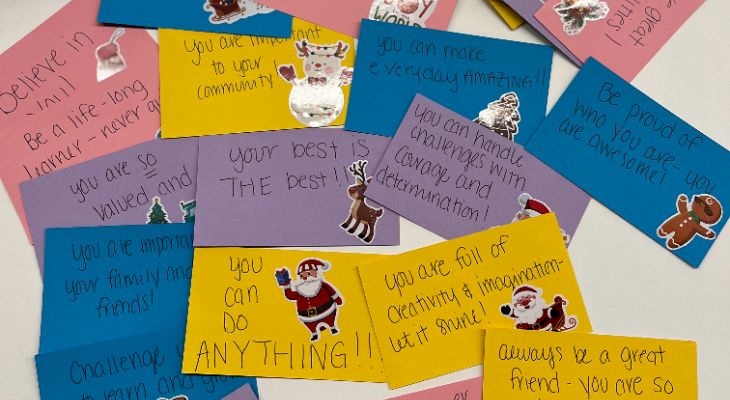 JOY
WORLD
great
you are important
to your
community!
you can make
everyday AMAZING!!
Believe in
Be a life-long
learner - never
you can handle
challenges with
courage and
determination!
Be proud of
who you are - you
are awesome!
you are so
valued and
your best is
THE best!!
you are important
your family and
friends!
you
can
DO
ANYTHING!!!
you are full of
creativity & imagination-
let it shine!
Challenge
to learn and
always be a great
friend - you are so